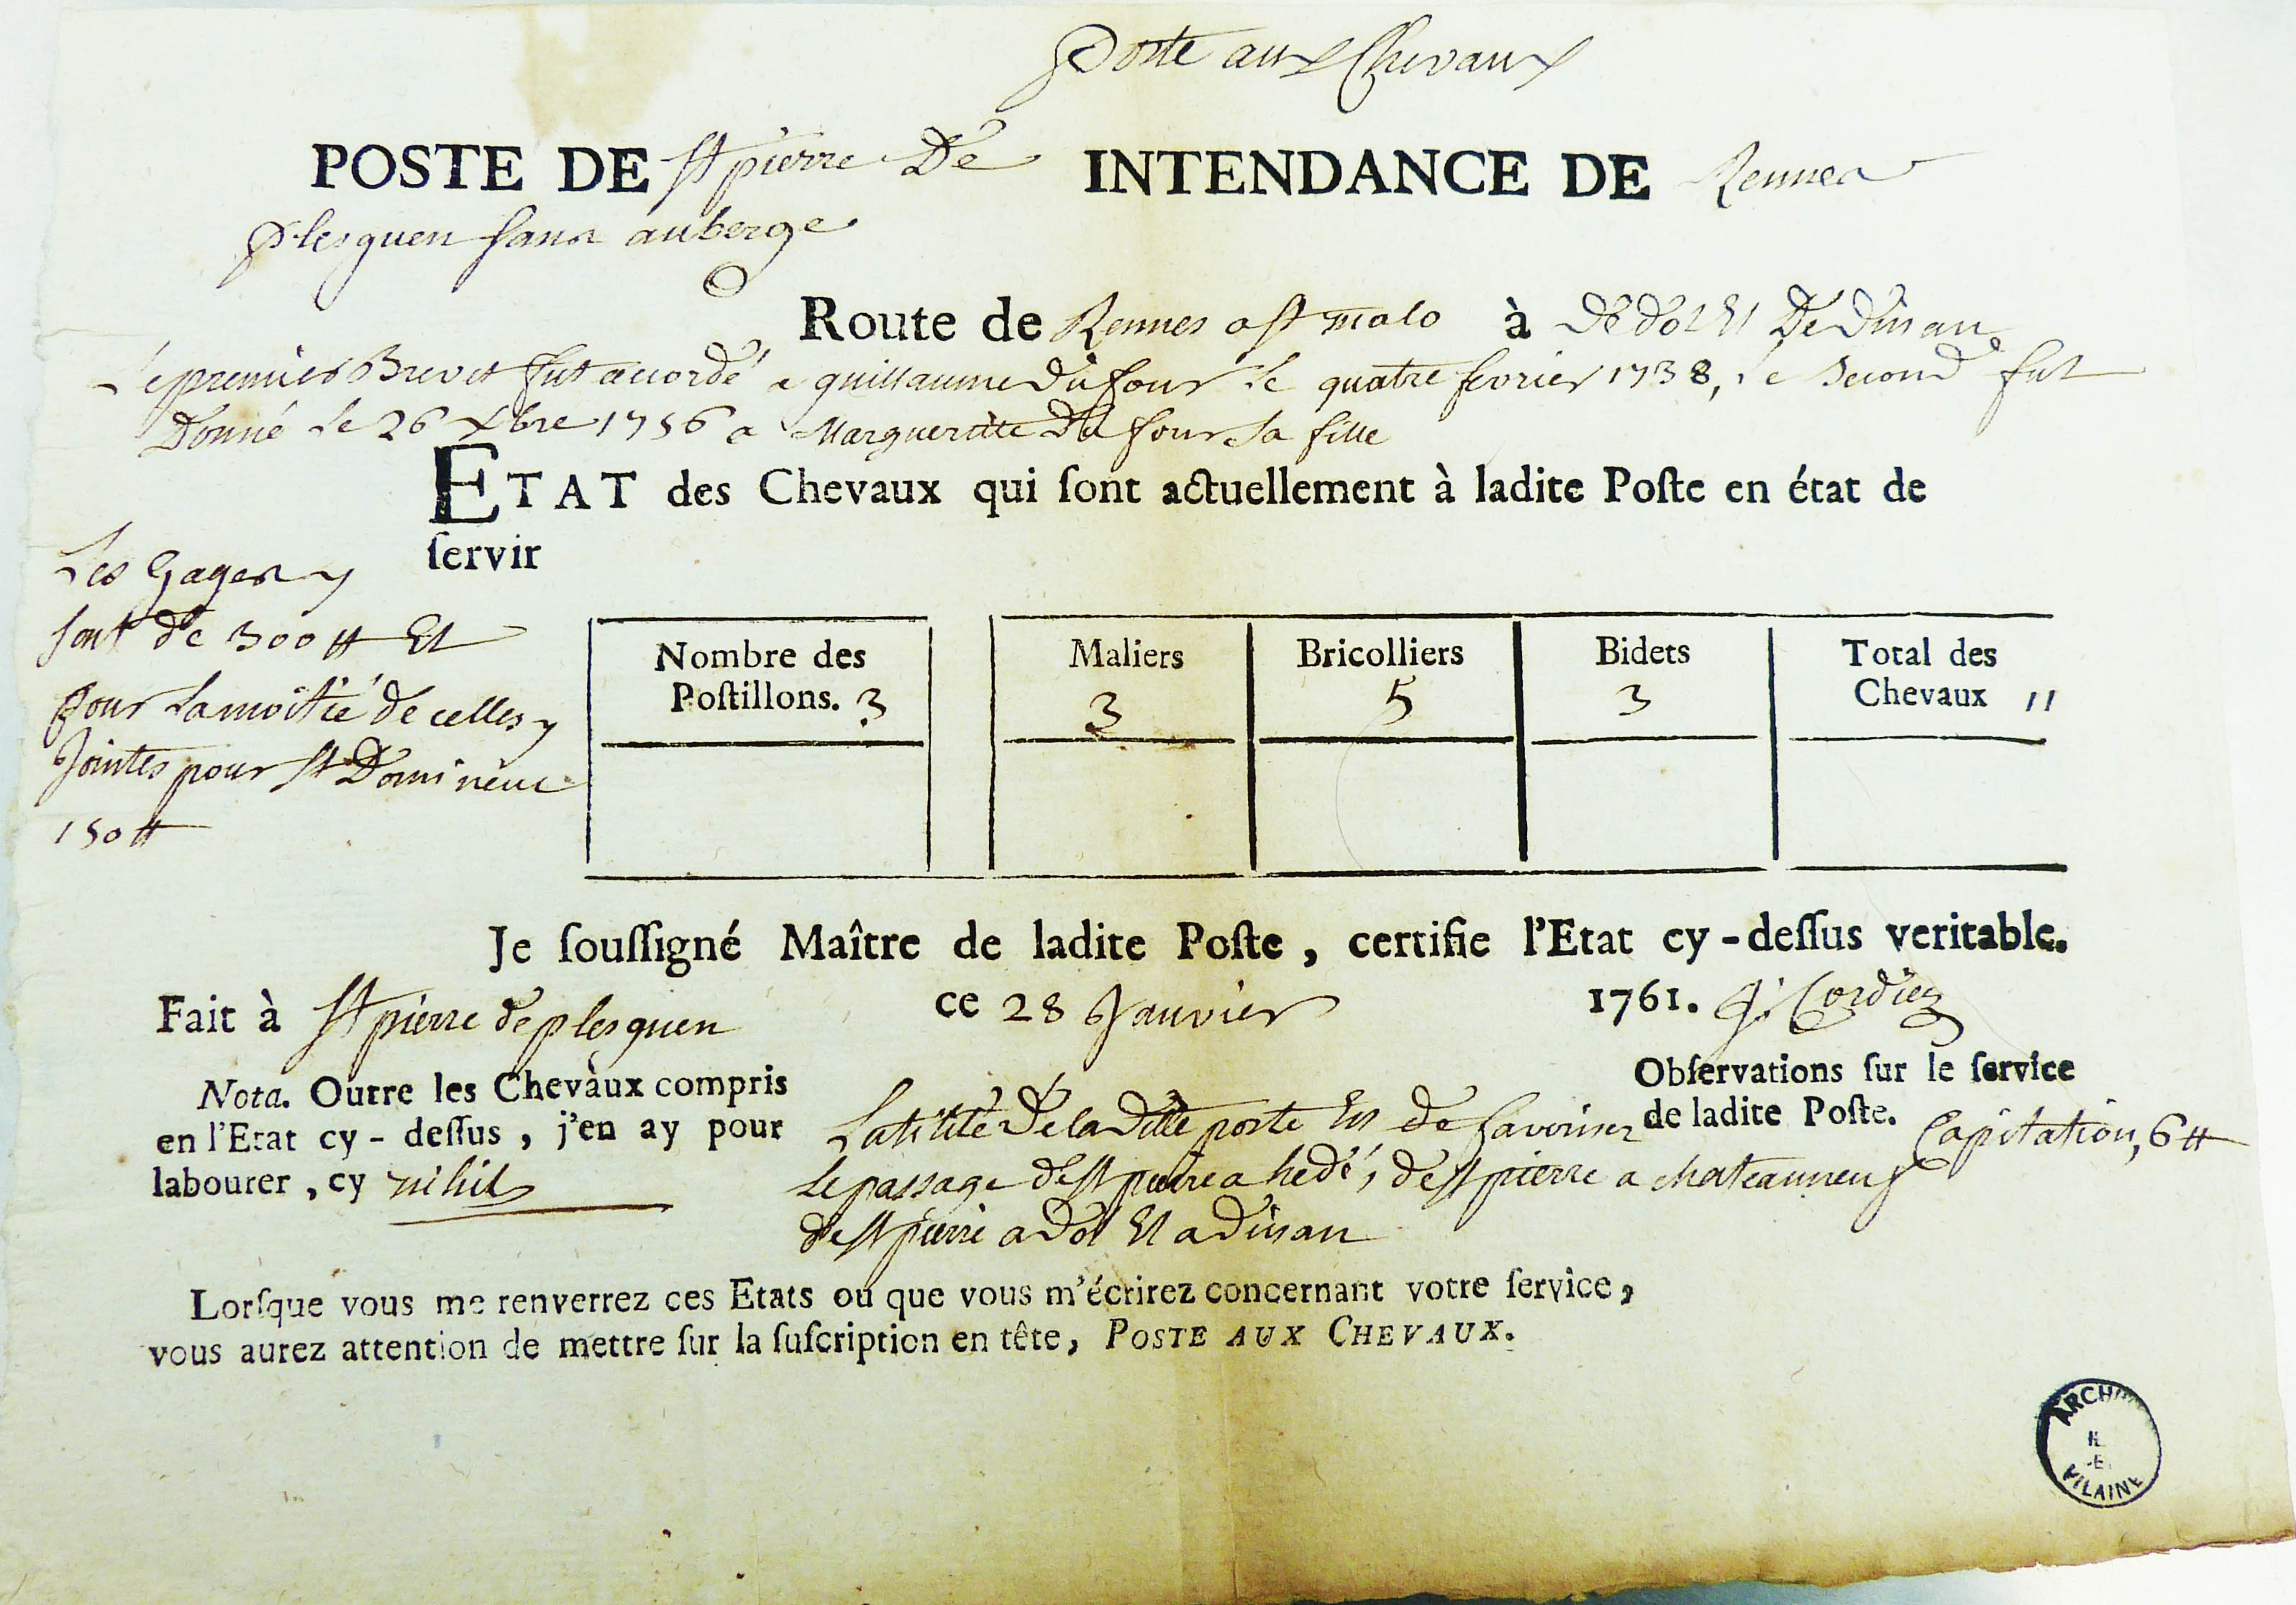 Poste aux Chevaux
POSTE DE St pierre De INTENDANCE DE Rennes
plesguen sans auberge
Route de Rennes a st malo à De dol Et De Dinan
Le premier Brevet fut accordé a guillaume Du four le quatre fevrier 1738, le second fut
Donné le 26 Xbre 1756 a Margueritte Du four sa fille
ETAT des Chevaux qui ſont actuellement à ladite Poſte en état de
ſervir
Les Gages y
sont de 300 ₶ Et
pour la moitié de celles y
Jointes pour St Domineuc
150 ₶
Nombre des
Poſtillons. 3
Maliers
3
Bricolliers
5
Bidets
3
Total des
Chevaux 11
Je ſouſſigné Maître de ladite Poſte, certifie l'Etat cy-deſſus veritable.
Fait à St pierre de plesguen ce 28 Janvier 1761. J: Cordier
Nota. Outre les Chevaux compris
en l'Etat cy-deſſus, j'en ay pour
labourer, cy nihil
Obſervations ſur le ſervice
de ladite Poſte. Capitation, 6 ₶
Latilité De la Ditte poste Est de favoriser
le passage de St pierre a hedé, de St pierre a chateauneuf
de St pierre a Dol Et a Dinan
Lorſque vous me renverrez ces Etats ou que vous m'écrirez concernant votre ſervice,
vous aurez attention de mettre ſur la ſuſcription en tête, POSTE AUX CHEVAUX.
VILAINE